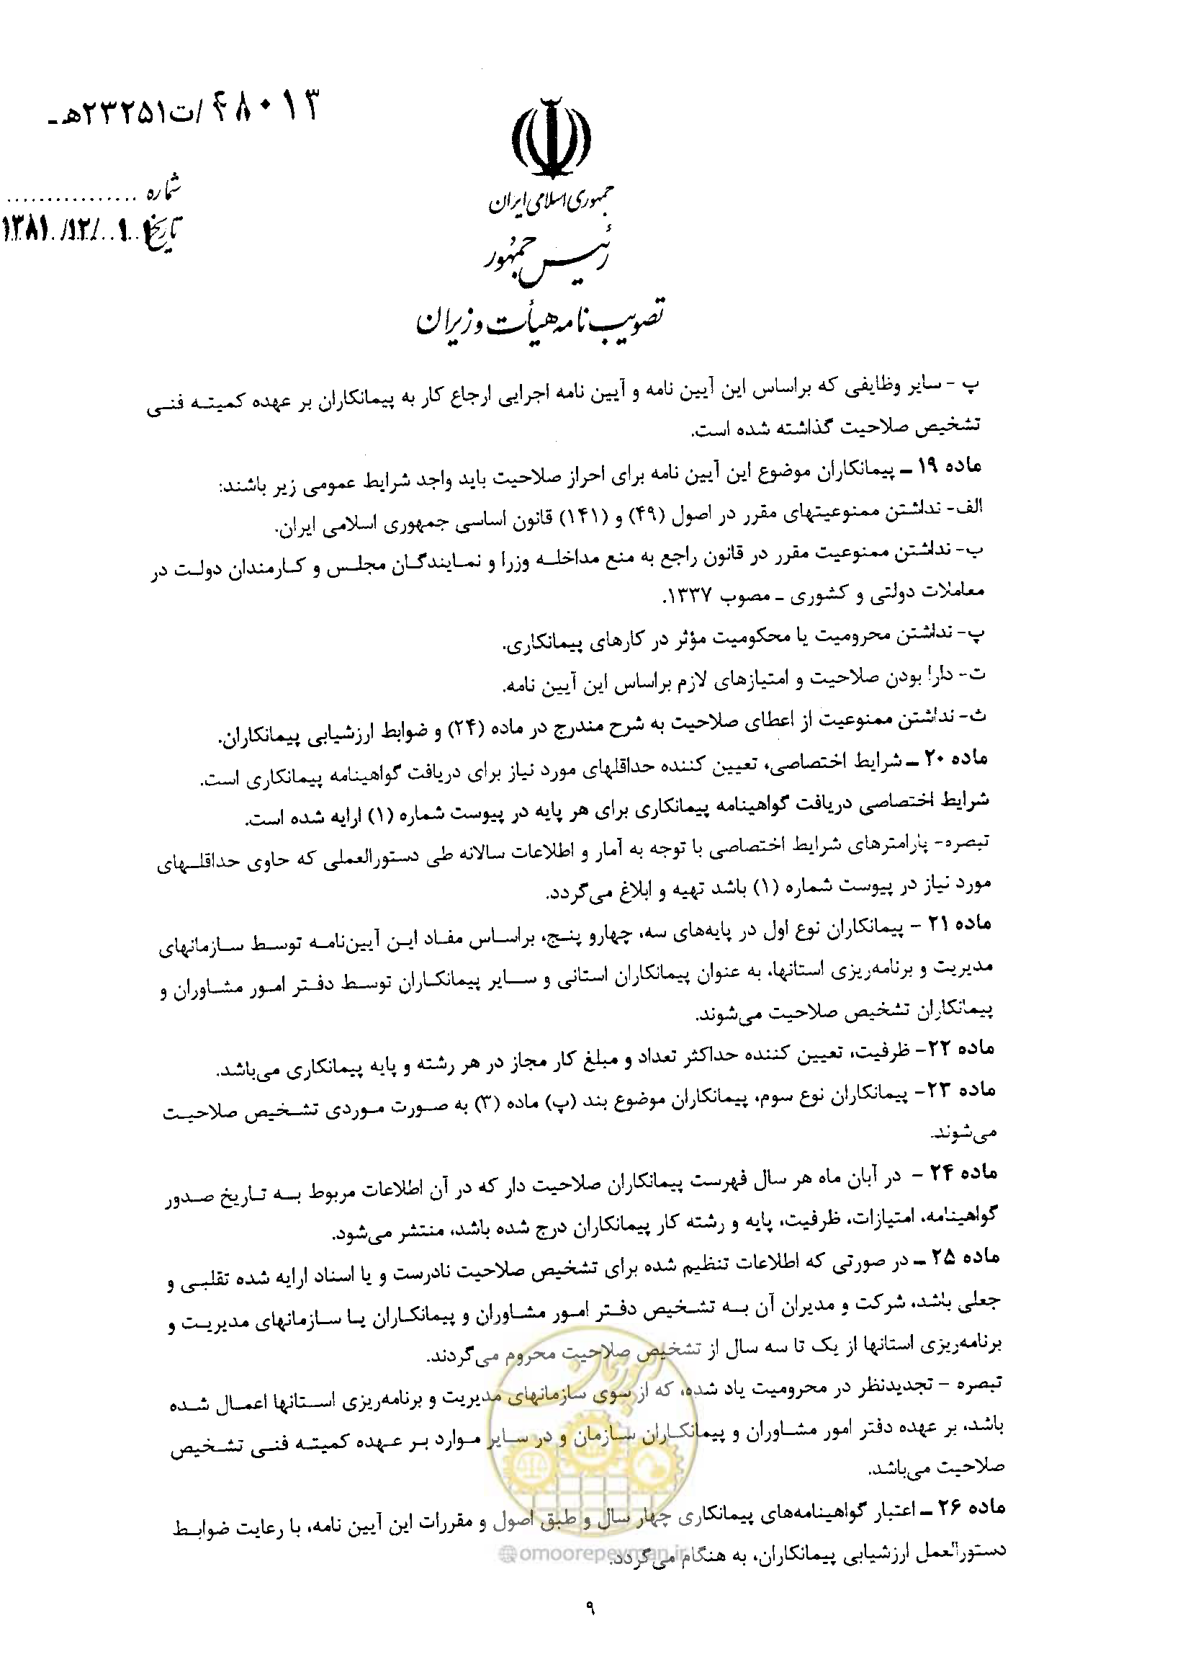 ۴۸۰۱۳/ت۲۳۲۵۱هـ
شماره ................
تاریخ ۱۳۸۱/۱۲/۰۱
جمهوری اسلامی ایران
رئیس جمهور
تصویب نامه هیأت وزیران
پ - سایر وظایفی که براساس این آیین نامه و آیین نامه اجرایی ارجاع کار به پیمانکاران بر عهده کمیته فنی
تشخیص صلاحیت گذاشته شده است.
ماده ۱۹ ـ پیمانکاران موضوع این آیین نامه برای احراز صلاحیت باید واجد شرایط عمومی زیر باشند:
الف- نداشتن ممنوعیتهای مقرر در اصول (۴۹) و (۱۴۱) قانون اساسی جمهوری اسلامی ایران.
ب- نداشتن ممنوعیت مقرر در قانون راجع به منع مداخله وزرا و نمایندگان مجلس و کارمندان دولت در
معاملات دولتی و کشوری ـ مصوب ۱۳۳۷.
پ- نداشتن محرومیت یا محکومیت مؤثر در کارهای پیمانکاری.
ت- دارا بودن صلاحیت و امتیازهای لازم براساس این آیین نامه.
ث- نداشتن ممنوعیت از اعطای صلاحیت به شرح مندرج در ماده (۲۴) و ضوابط ارزشیابی پیمانکاران.
ماده ۲۰ ـ شرایط اختصاصی، تعیین کننده حداقلهای مورد نیاز برای دریافت گواهینامه پیمانکاری است.
شرایط اختصاصی دریافت گواهینامه پیمانکاری برای هر پایه در پیوست شماره (۱) ارایه شده است.
تبصره- پارامترهای شرایط اختصاصی با توجه به آمار و اطلاعات سالانه طی دستورالعملی که حاوی حداقلهای
مورد نیاز در پیوست شماره (۱) باشد تهیه و ابلاغ می‌گردد.
ماده ۲۱ - پیمانکاران نوع اول در پایه‌های سه، چهارو پنج، براساس مفاد این آیین‌نامه توسط سازمانهای
مدیریت و برنامه‌ریزی استانها، به عنوان پیمانکاران استانی و سایر پیمانکاران توسط دفتر امور مشاوران و
پیمانکاران تشخیص صلاحیت می‌شوند.
ماده ۲۲- ظرفیت، تعیین کننده حداکثر تعداد و مبلغ کار مجاز در هر رشته و پایه پیمانکاری می‌باشد.
ماده ۲۳- پیمانکاران نوع سوم، پیمانکاران موضوع بند (پ) ماده (۳) به صورت موردی تشخیص صلاحیت
می‌شوند.
ماده ۲۴ - در آبان ماه هر سال فهرست پیمانکاران صلاحیت دار که در آن اطلاعات مربوط به تاریخ صدور
گواهینامه، امتیازات، ظرفیت، پایه و رشته کار پیمانکاران درج شده باشد، منتشر می‌شود.
ماده ۲۵ ـ در صورتی که اطلاعات تنظیم شده برای تشخیص صلاحیت نادرست و یا اسناد ارایه شده تقلبی و
جعلی باشد، شرکت و مدیران آن به تشخیص دفتر امور مشاوران و پیمانکاران یا سازمانهای مدیریت و
برنامه‌ریزی استانها از یک تا سه سال از تشخیص صلاحیت محروم می‌گردند.
تبصره - تجدیدنظر در محرومیت یاد شده، که از سوی سازمانهای مدیریت و برنامه‌ریزی استانها اعمال شده
باشد، بر عهده دفتر امور مشاوران و پیمانکاران سازمان و در سایر موارد بر عهده کمیته فنی تشخیص
صلاحیت می‌باشد.
ماده ۲۶ ـ اعتبار گواهینامه‌های پیمانکاری چهار سال و طبق اصول و مقررات این آیین نامه، با رعایت ضوابط
دستورالعمل ارزشیابی پیمانکاران، به هنگام می‌گردد.
امور پیمان
omoorepeyman.ir
۹